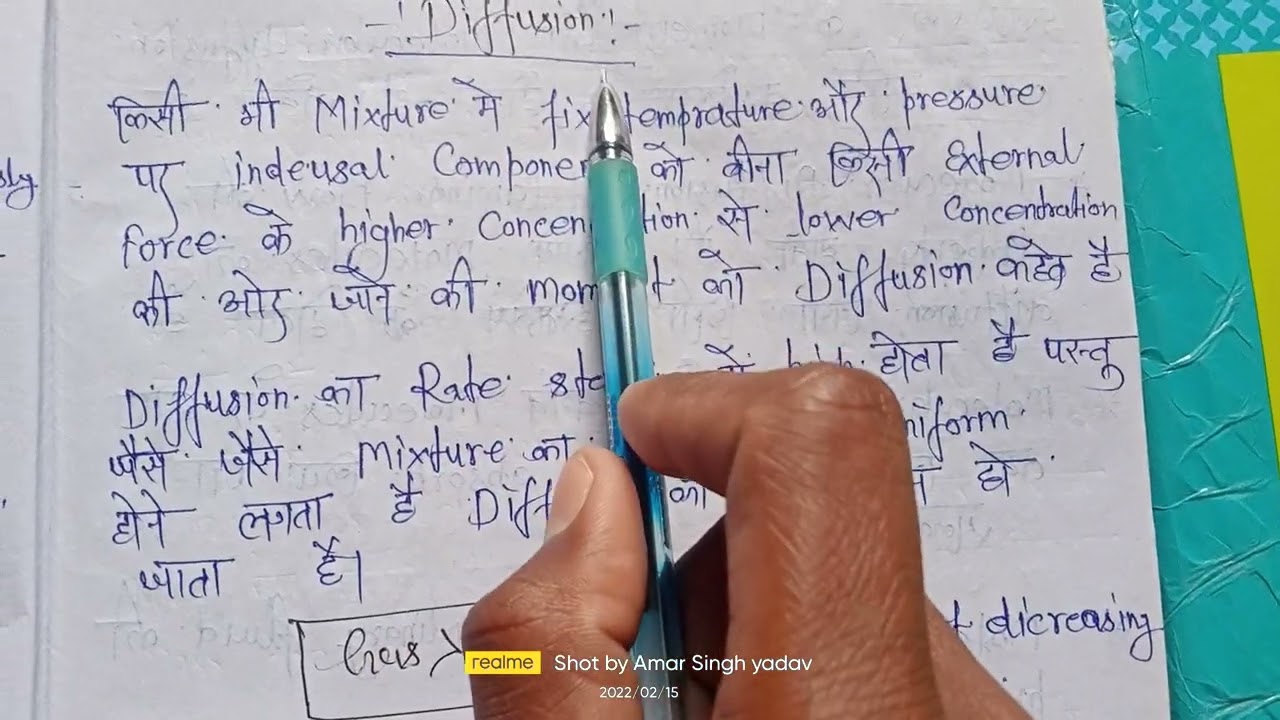 -! Diffusion !-
किसी भी Mixture में fix temprature और pressure
पर indeusal Componen को बीना किसी External
force के higher Concen tion से lower Concentration
की ओर जाने की mom t को Diffusion कहते है
Diffusion का Rate sta में high होता है परन्तु
जैसे जैसे Mixture का niform
होने लगता है Diff का हो
जाता है।
Gas >
dicreasing
realme Shot by Amar Singh yadav
2022/02/15